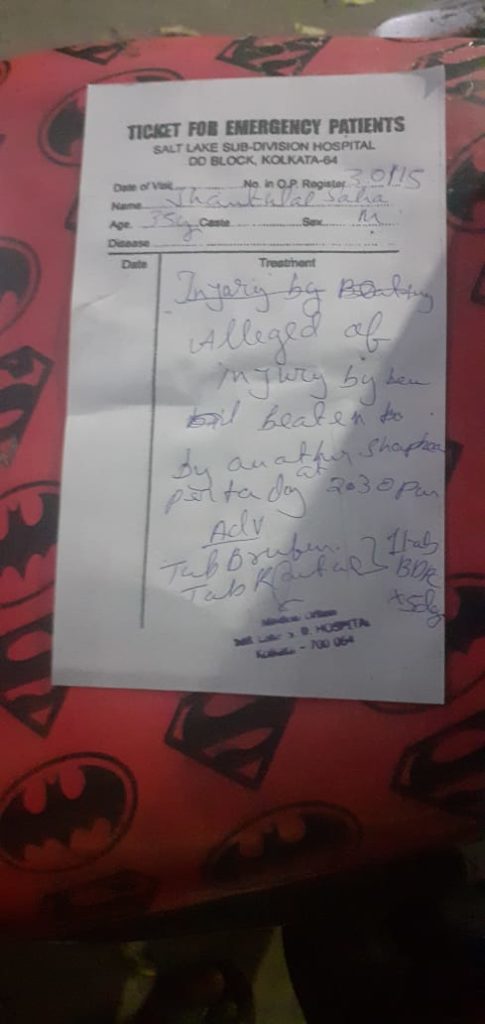 TICKET FOR EMERGENCY PATIENTS
SALT LAKE SUB-DIVISION HOSPITAL
DD BLOCK, KOLKATA-64
Date of Visit No. in O.P. Register 30/15
Name Saha
Age 35y Caste Sex M
Disease
Date Treatment
Injury by Beating
Alleged of
injury by
beaten
by another
today at 2:30 pm
Adv
Tab
Tab
1 tab
Medical Officer
Salt Lake S. D. HOSPITAL
Kolkata - 700 064